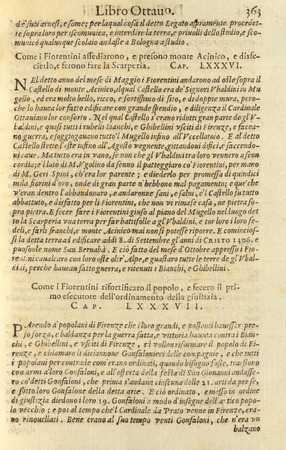 Libro Ottauo. 363
de' suoi arnesi, e some; per laqual cosa il detto Legato aspramente procedet-
te sopra loro per iscomunica, e interdire la terra, e priuolli dello studio, e sco-
municò qualunque scolaio andasse a Bologna a studio.
Come i Fiorentini assediarono, e presono monte Acinico, e disfe-
cierlo, e ferono fare la Scarperia. CAP. LXXXVI.
NEl detto anno del mese di Maggio i Fiorentini andarono ad oste sopra il
Castello di monte Acinico, lo qual Castello era de' Signori Vbaldini in Mu
gello, ed era molto bello, ricco, e fortissimo di sito, e di doppie mura, pero-
che lo hauea lor fatto edificare con grande spendio, e diligenza il Cardinale
Ottauiano lor consorto. Nel qual Castello s'erano ridotti gran parte degl'V-
baldini, e quasi tutti i nobili Bianchi, e Ghibellini vsciti di Firenze, e facea-
no guerra, e soggiogauano tutto'l Mugello infino all'Vccellatoio. E al detto
Castello stette l'oste infino all'Agosto vegnente, gittandoui difici, e faccendo-
ui caue. Ma tutto era in vano, se non che gl'Vbaldini tra loro vennero a scon
cordia; e'l lato di M. Vgolino da Senno il patteggiaro co' Fiorentini, per mano
di M. Geri Spini, ch'era lor parente; e diederlo per promessa di quindici
mila fiorini d'oro, onde di gran parte n'hebbono mal pagamento; e que' che
v'eran dentro l'abbandonaro, e andarsonne sani, e salui, e'l Castello fu tutto
abbattuto, e disfatto per li Fiorentini, che non vi rimase casa, ne pietra so-
pra pietra. E fecer fare i Fiorentini giuso al piano del Mugello nel luogo det-
to la Scarperia vna terra per far battifolle agl'Vbaldini, e tor loro i loro fe-
deli, e farli franchi, e monte Acinico mai non si potesse riporre. E comincios-
si la detta terra ad edificare addì 8. di Settembre gl'anni di CHRISTO 1306. e
puosonle nome San Bernabà. E ciò fatto del mese d'Ottobre appresso i Fiore-
tini caualcaro con loro oste oltr'Alpe, e guastaro tutte le terre de gl'Vbaldi-
ni, perche haueano fatto guerra, e ritenuti i Bianchi, e Ghibellini.
Come i Fiorentini rifortificaro il popolo, e fecero il pri-
mo esecutore dell'ordinamento della giustizia.
CAP. LXXXVII.
PArendo a' popolani di Firenze che i loro grandi, e possenti hauesser pre-
so forza, e baldanza per la guerra fatta, e vittoria hauuta contra i Bian-
chi, e Ghibellini, e vsciti di Firenze, sì vollon riformare il popolo di Fi-
renze, e chiamaro il diciannoue Gonfalonieri delle compagnie, e che tutti
i popolani per contrade con erano ordinati, quando bisogno fosse, traessono
con armi a loro Gonfaloni, e all'offerta della festa di San Giouanni andasse-
ro co' detti Gonfaloni, che prima s'andaua ciascuna delle 21. arti da per se,
e sotto i loro Gonfaloni della detta arte. E ciò ordinato, e messo in ordine
di giustizia diedono i loro 19. Gonfaloni a modo, e insegne dell'antico popo-
lo vecchio; e poi al tempo che'l Cardinale da Prato venne in Firenze, era-
no rinouellati. Bene erano al suo tempo venti Gonfaloni, che n'era vn
balzano